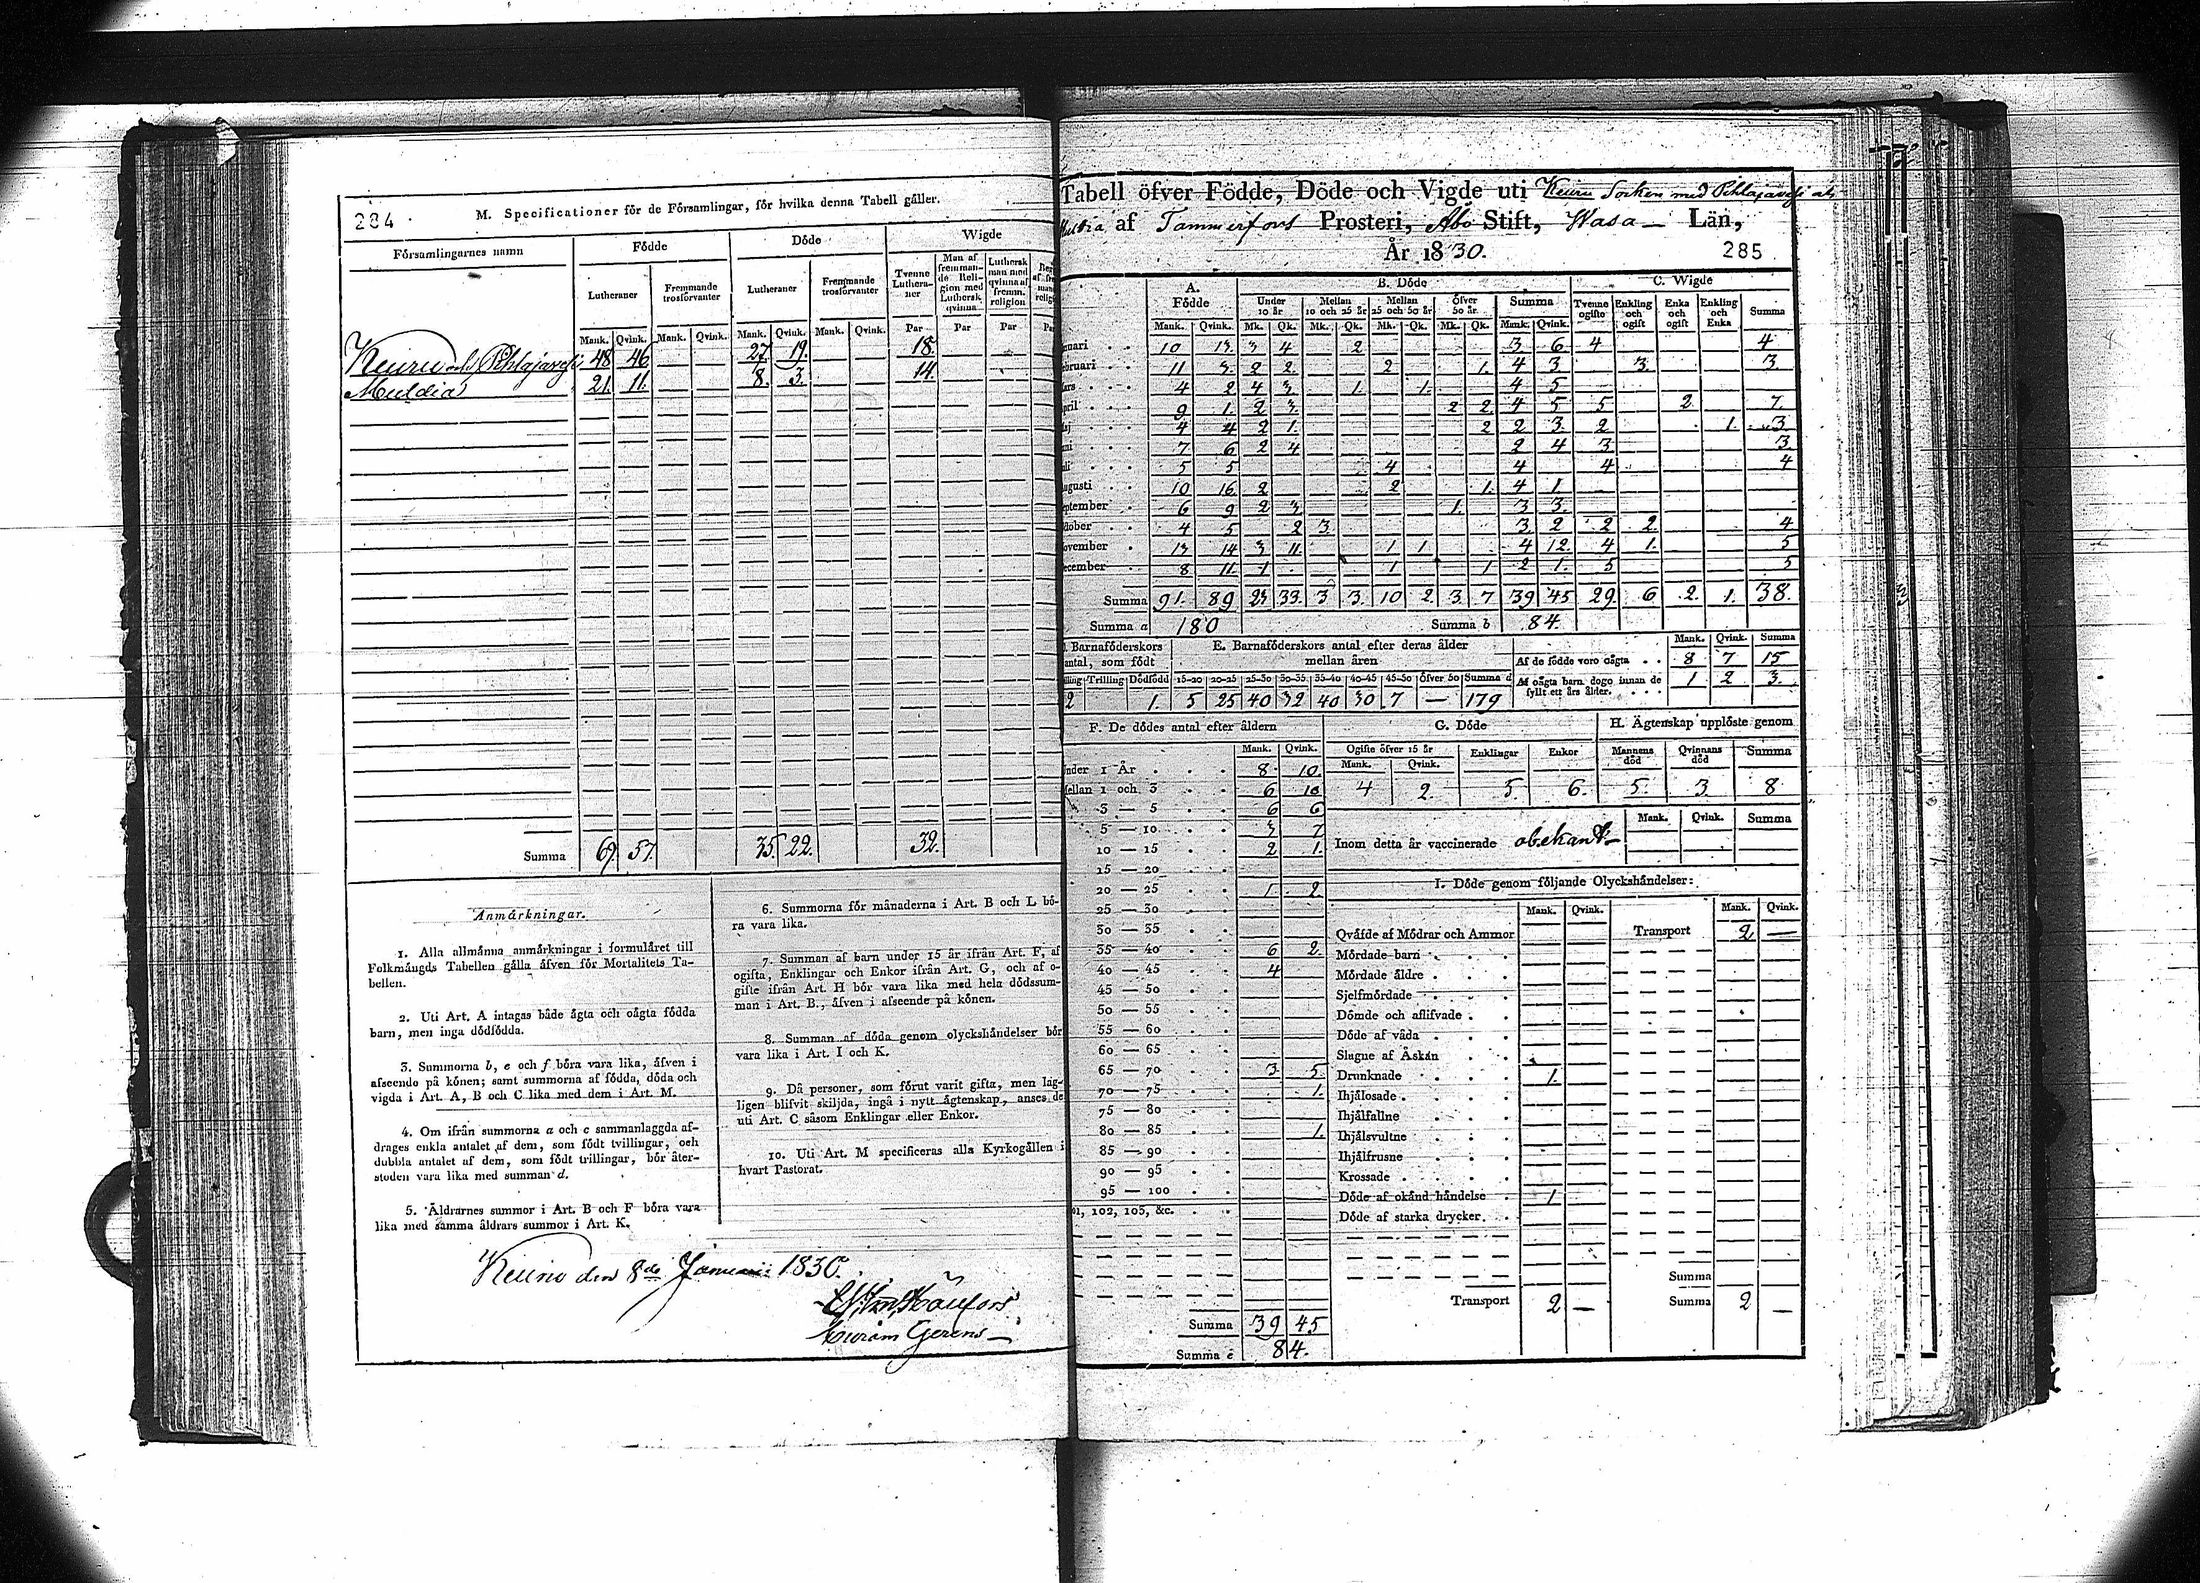 284
M. Specificationer för de Församlingar, för hvilka denna Tabell gäller.
Församlingarnes namn
Födde
Döde
Wigde
Lutheraner
Fremmande trosförvanter
Lutheraner
Fremmande trosförvanter
Tvenne Lutheraner
Man af fremmande Religion med Luthersk qvinna
Luthersk man med qvinna af fremm. religion
Mank. Qvink. Mank. Qvink. Mank. Qvink. Mank. Qvink. Par Par Par
Keuru och Pihlajavesi 48 46 27 19 18
Muldia 21 11 8 3 14
Summa 69 57 35 22 32
Anmärkningar.
1. Alla allmänna anmärkningar i formuläret till
Folkmängds Tabellen gälla äfven för Mortalitets Ta-
bellen.
2. Uti Art. A intagas både ägta och oägta födda
barn, men inga dödfödda.
3. Summorna b, e och f böra vara lika, äfven i
afseende på könen; samt summorna af födda, döda och
vigda i Art. A, B och C lika med dem i Art. M.
4. Om ifrån summorna a och c sammanlaggda af-
drages enkla antalet af dem, som födt tvillingar, och
dubbla antalet af dem, som födt trillingar, bör åter-
stoden vara lika med summan d.
5. Åldrarnes summor i Art. B och F böra vara
lika med samma åldrars summor i Art. K.
6. Summorna för månaderna i Art. B och L bö-
ra vara lika.
7. Summan af barn under 15 år ifrån Art. F, af
ogifta, Enklingar och Enkor ifrån Art. G, och af
gifte ifrån Art. H bör vara lika med hela dödssum-
man i Art. B., äfven i afseende på könen.
8. Summan af döda genom olyckshändelser bör
vara lika i Art. I och K.
9. Då personer, som förut varit gifta, men lag-
ligen blifvit skiljda, ingå i nytt ägtenskap, anses de
uti Art. C såsom Enklingar eller Enkor.
10. Uti Art. M specificeras alla Kyrkogällen i
hvart Pastorat.
Keuru den 8de Januarii 1830.
Tabell öfver Födde, Döde och Vigde uti Keuru Socken med Pihlajavesi
af Tammerfors Prosteri, Åbo Stift, Wasa Län,
År 1830.
285
A. Födde
B. Döde
C. Wigde
Under 10 år
Mellan 10 och 25 år
Mellan 25 och 50 år
Öfver 50 år.
Summa
Tvenne ogifte
Enkling och ogift
Enka och ogift
Enkling och Enka
Summa
Mank. Qvink. Mk. Qk. Mk. Qk. Mk. Qk. Mk. Qk. Mank. Qvink.
nuari 10 13 3 4 2 3 6 4 4
bruari 11 3 2 2 2 1 4 3 3 3
ars 4 2 4 3 1 1 4 5
pril 9 1 2 3 2 2 4 5 5 2 7
aj 4 4 2 1 2 2 3 2 1 3
uni 7 6 2 4 2 4 3 3
uli 5 5 4 4 4 4
ugusti 10 16 2 2 1 4 1
eptember 6 9 2 3 1 3 3
ktober 4 5 2 3 3 2 2 2 4
ovember 13 14 3 11 1 1 4 12 4 1 5
ecember 8 11 1 1 1 2 1 5 5
Summa 91 89 23 33 3 3 10 2 3 7 39 45 29 6 2 1 38
Summa a 180 Summa b 84.
Barnaföderskors antal, som födt
E. Barnaföderskors antal efter deras ålder mellan åren
Mank. Qvink. Summa
Af de födde voro oägta 8 7 15
Af oägta barn dogo innan de fyllt ett års ålder. 1 2 3
Trilling Dödfödd 15-20 20-25 25-30 30-35 35-40 40-45 45-50 öfver 50 Summa d
2 1 5 25 40 32 40 30 7 — 179
F. De dödes antal efter åldern
Mank. Qvink.
nder 1 År 8 10
ellan 1 och 3 6 10
3 — 5 6 6
5 — 10 3 7
10 — 15 2 1
15 — 20
20 — 25 1 2
25 — 30
30 — 35
35 — 40 6 2
40 — 45 4
45 — 50
50 — 55
55 — 60
60 — 65
65 — 70 3 5
70 — 75 1
75 — 80
80 — 85 1
85 — 90
90 — 95
95 — 100
101, 102, 103, &c.
Summa 39 45
Summa e 84.
G. Döde
Ogifte öfver 15 år
Mank. Qvink.
Enklingar
Enkor
4 2 5 6
H. Ägtenskap upplöste genom
Mannens död
Qvinnans död
Summa
5 3 8
Mank. Qvink. Summa
Inom detta år vaccinerade obekant
I. Döde genom följande Olyckshändelser:
Mank. Qvink. Mank. Qvink.
Qväfde af Mödrar och Ammor Transport 2 —
Mördade barn
Mördade äldre
Sjelfmördade
Dömde och aflifvade
Döde af våda
Slagne af Åskan
Drunknade 1
Ihjälosade
Ihjälfallne
Ihjälsvultne
Ihjälfrusne
Krossade
Döde af okänd händelse 1
Döde af starka drycker
Summa
Transport 2 — Summa 2 —